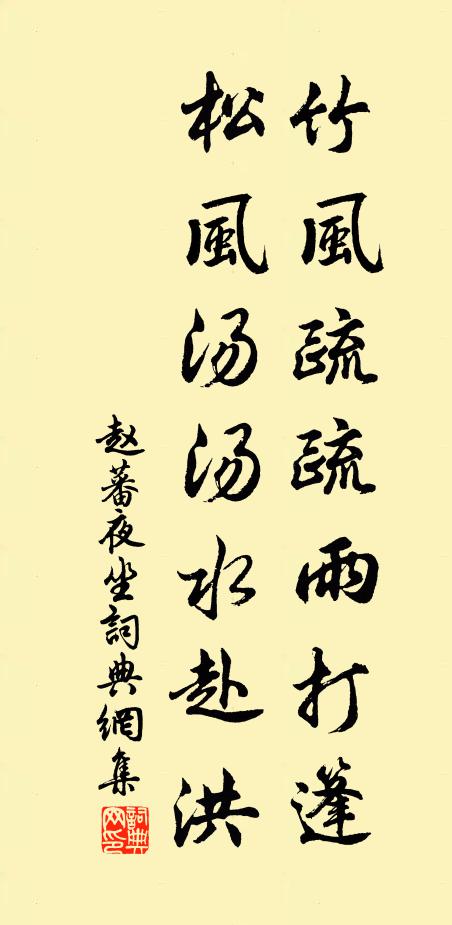 竹風疏疏雨打篷
松風汤汤水赴洪
赵蕃夜坐詞典網集
詞典网印